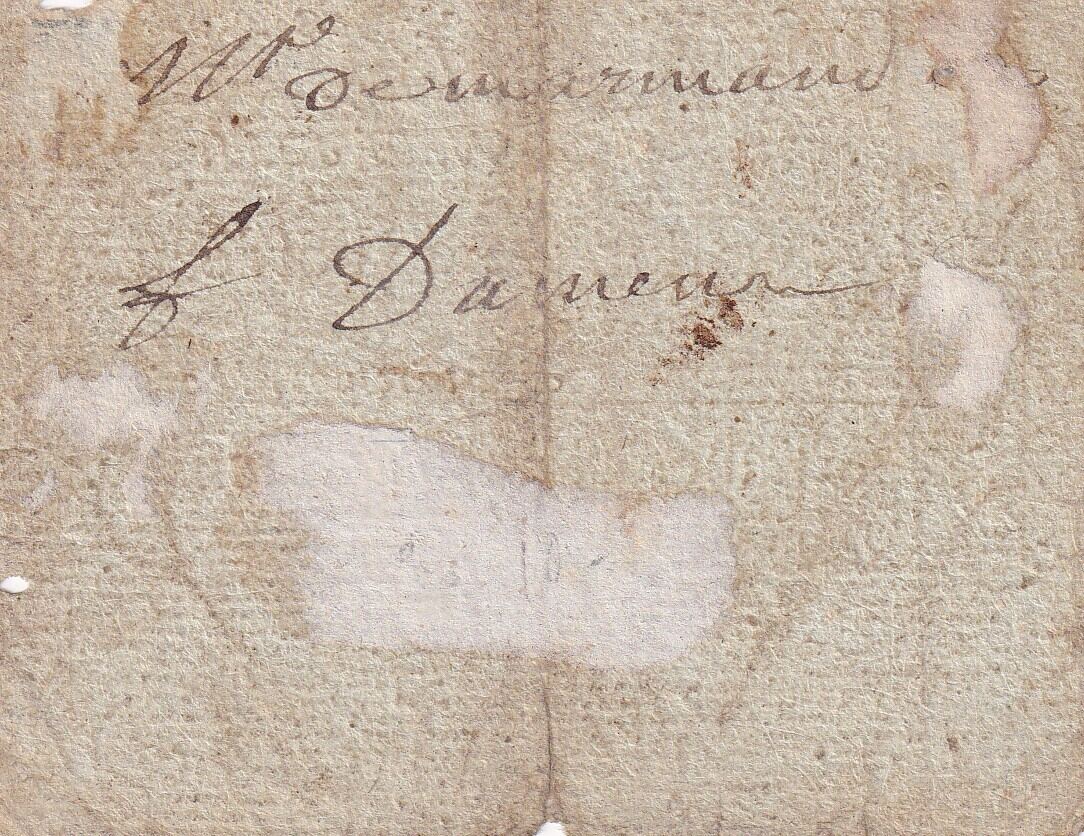 Mr demarmand
f Dameur